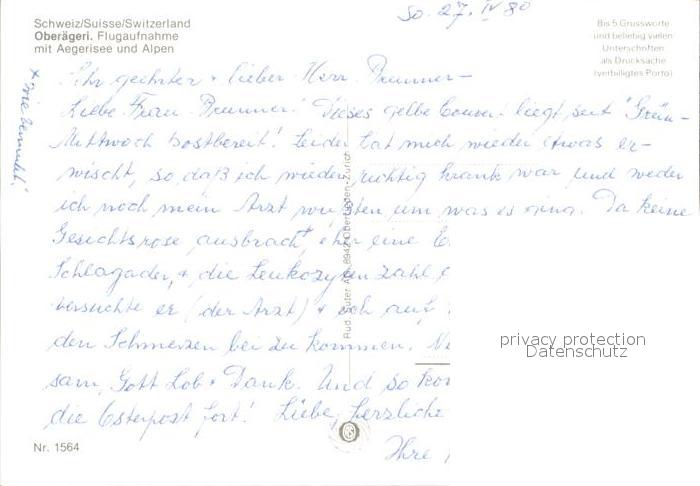 Schweiz/Suisse/Switzerland
Oberägeri. Flugaufnahme
mit Aegerisee und Alpen
So. 27. IV 80
Bis 5 Grussworte
und beliebig vielen
Unterschriften
als Drucksache
(verbilligtes Porto)
Sehr geehrter + lieber Herr Brunner –
Liebe Frau Brunner! Dieses gelbe Couvert liegt seit "Grün-
Mittwoch postbereit! Leider hat mich wieder etwas er-
wischt, so daß ich wieder richtig krank war und weder
ich noch mein Arzt wußten um was es ging. Da keine
Gesichtsrose ausbrach+, eher eine
Schlagader, + die Leukozyten zahl
versuchte er (der Arzt) + ich auf
den Schmerzen bei zu kommen.
sam, Gott Lob + Dank. Und so
die Osterpost fort! Liebe, herzliche
Ihre
Rud. Suter AG, 8942 Oberrieden-Zürich
privacy protection
Datenschutz
Nr. 1564